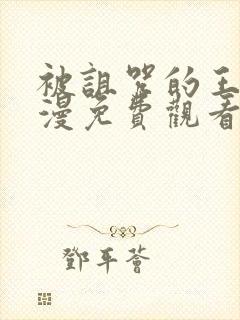 被詛咒的王
漫免費觀看
鄧平薈